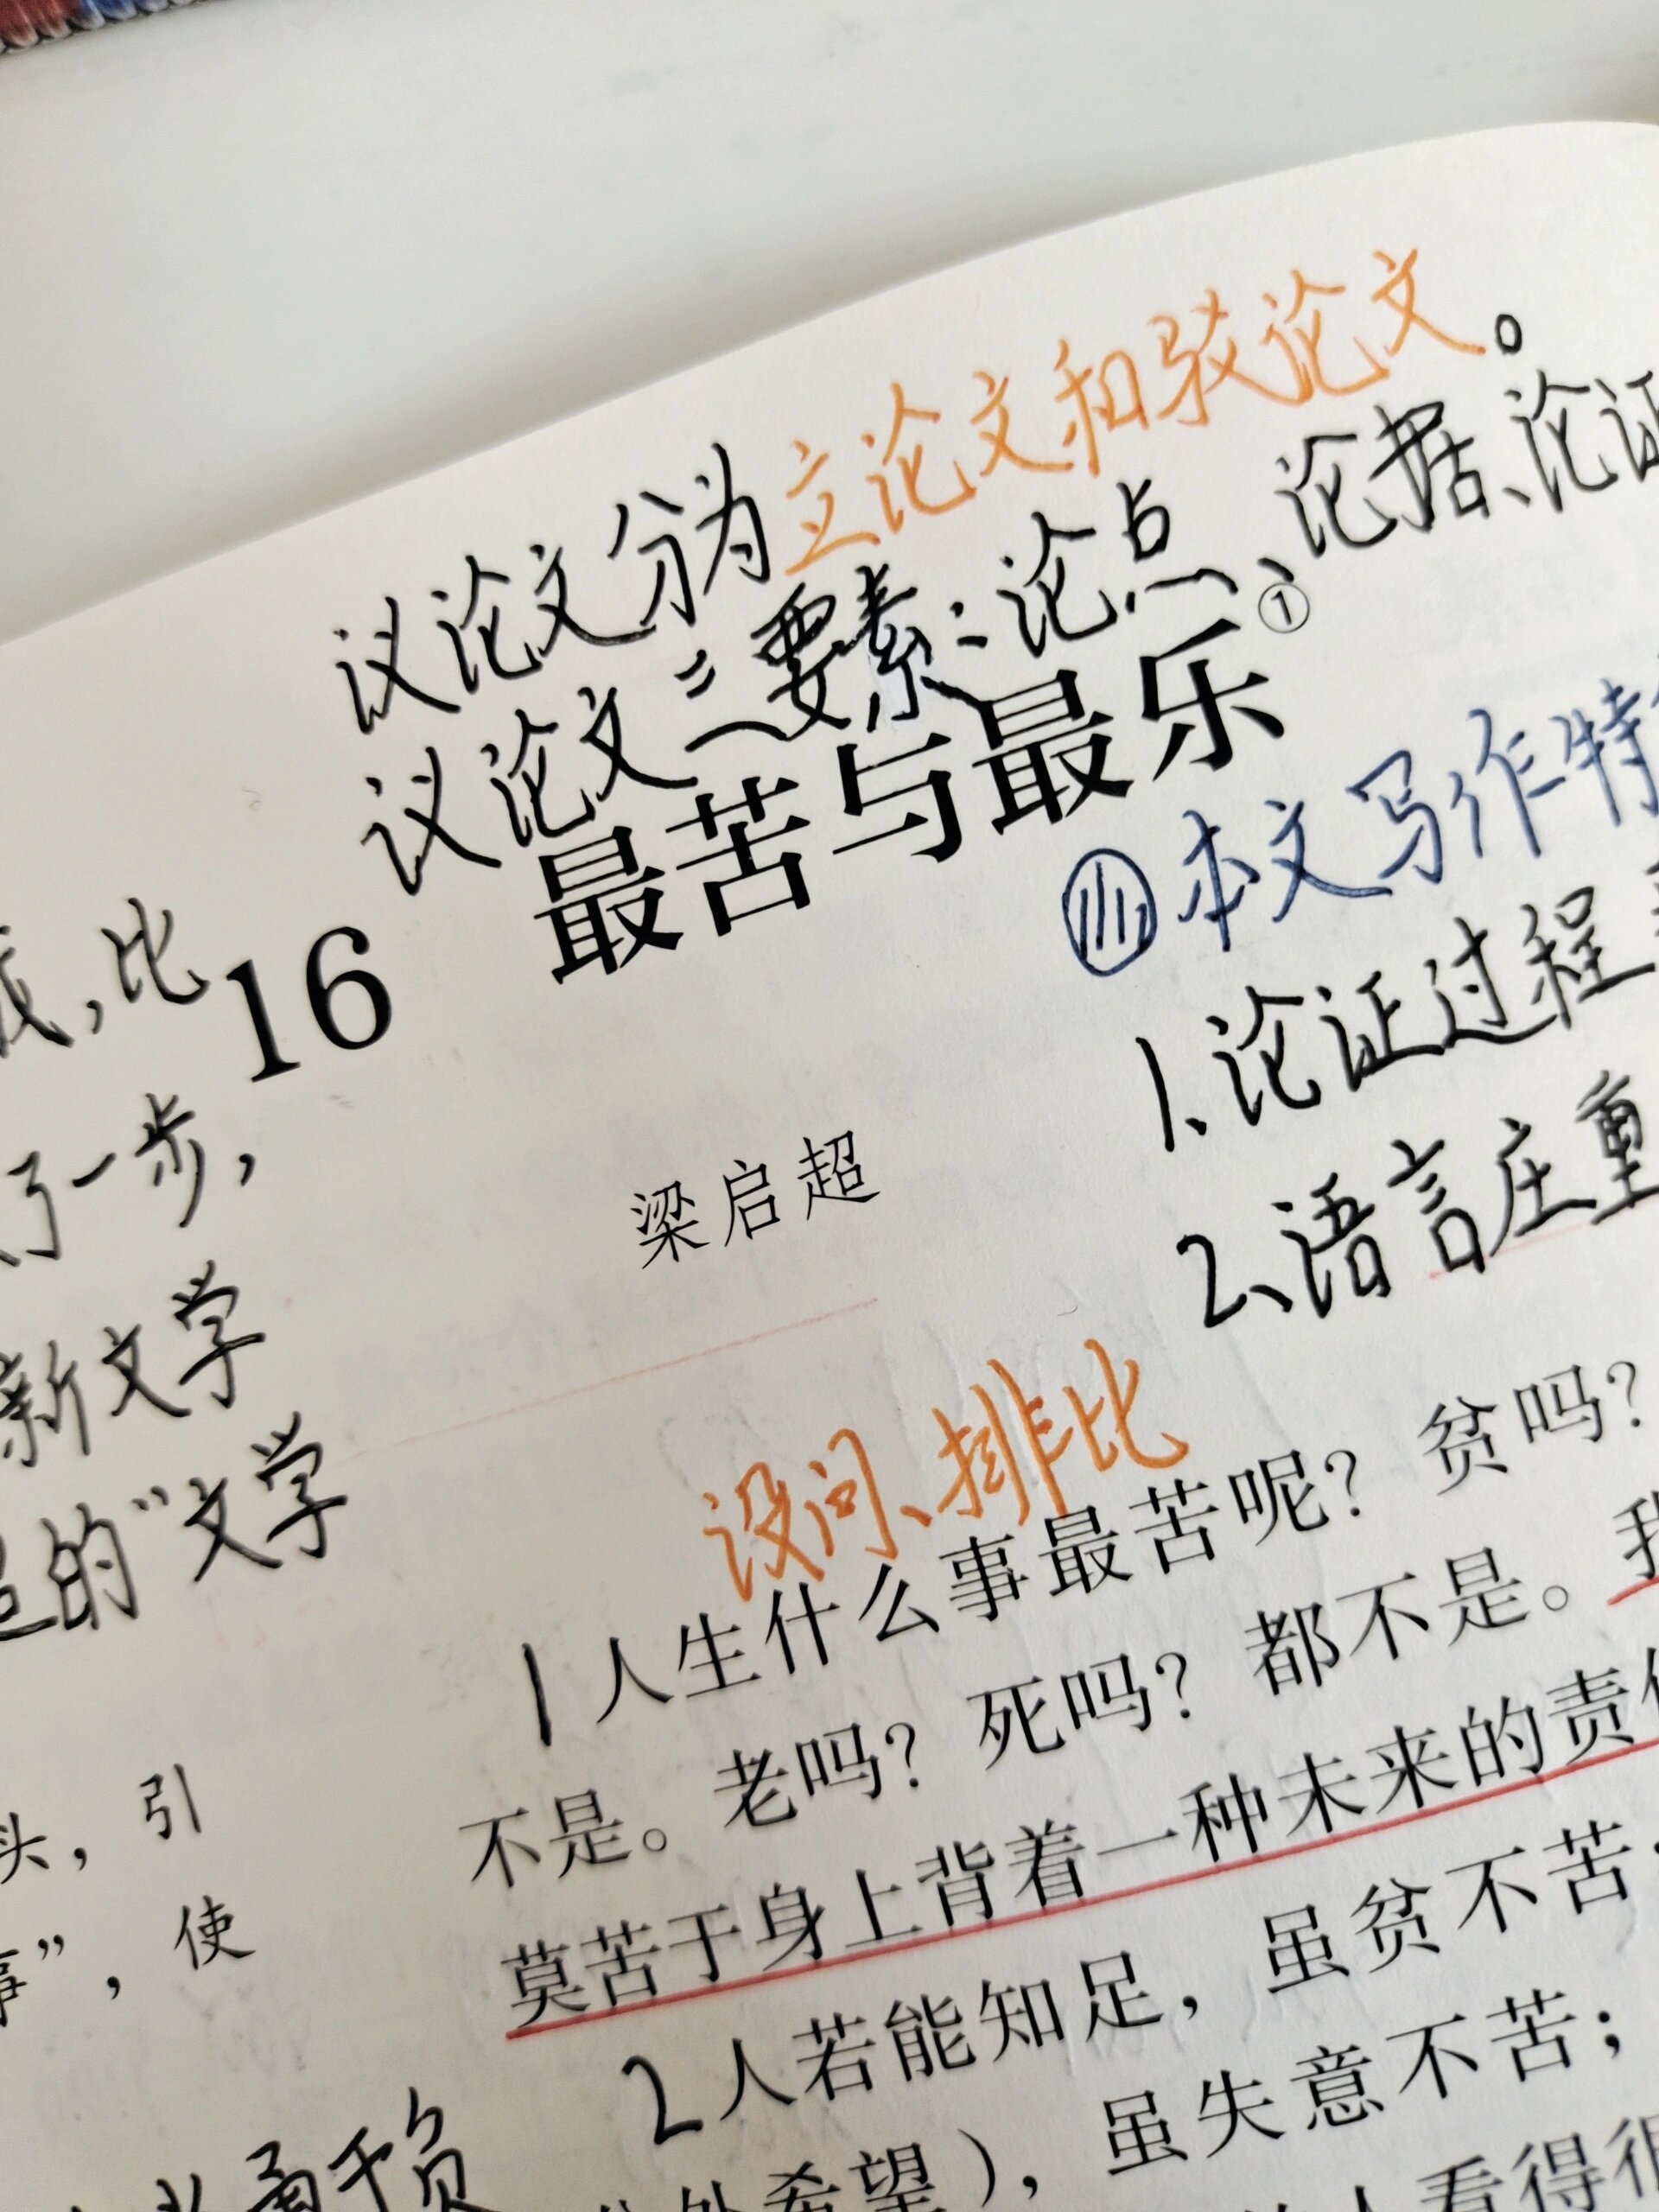 议论文分为立论文和驳论文。
议论文三要素:论点、论据、论证
16 最苦与最乐①
梁启超
本文写作特
1、论证过程
2、语言庄重
设问、排比
1人生什么事最苦呢?贫吗?
不是。老吗?死吗?都不是。我
莫苦于身上背着一种未来的责任
2人若能知足,虽贫不苦;
外希望),虽失意不苦;
人看得很
,比
了一步,
新文学
的"文学
头,引
”,使